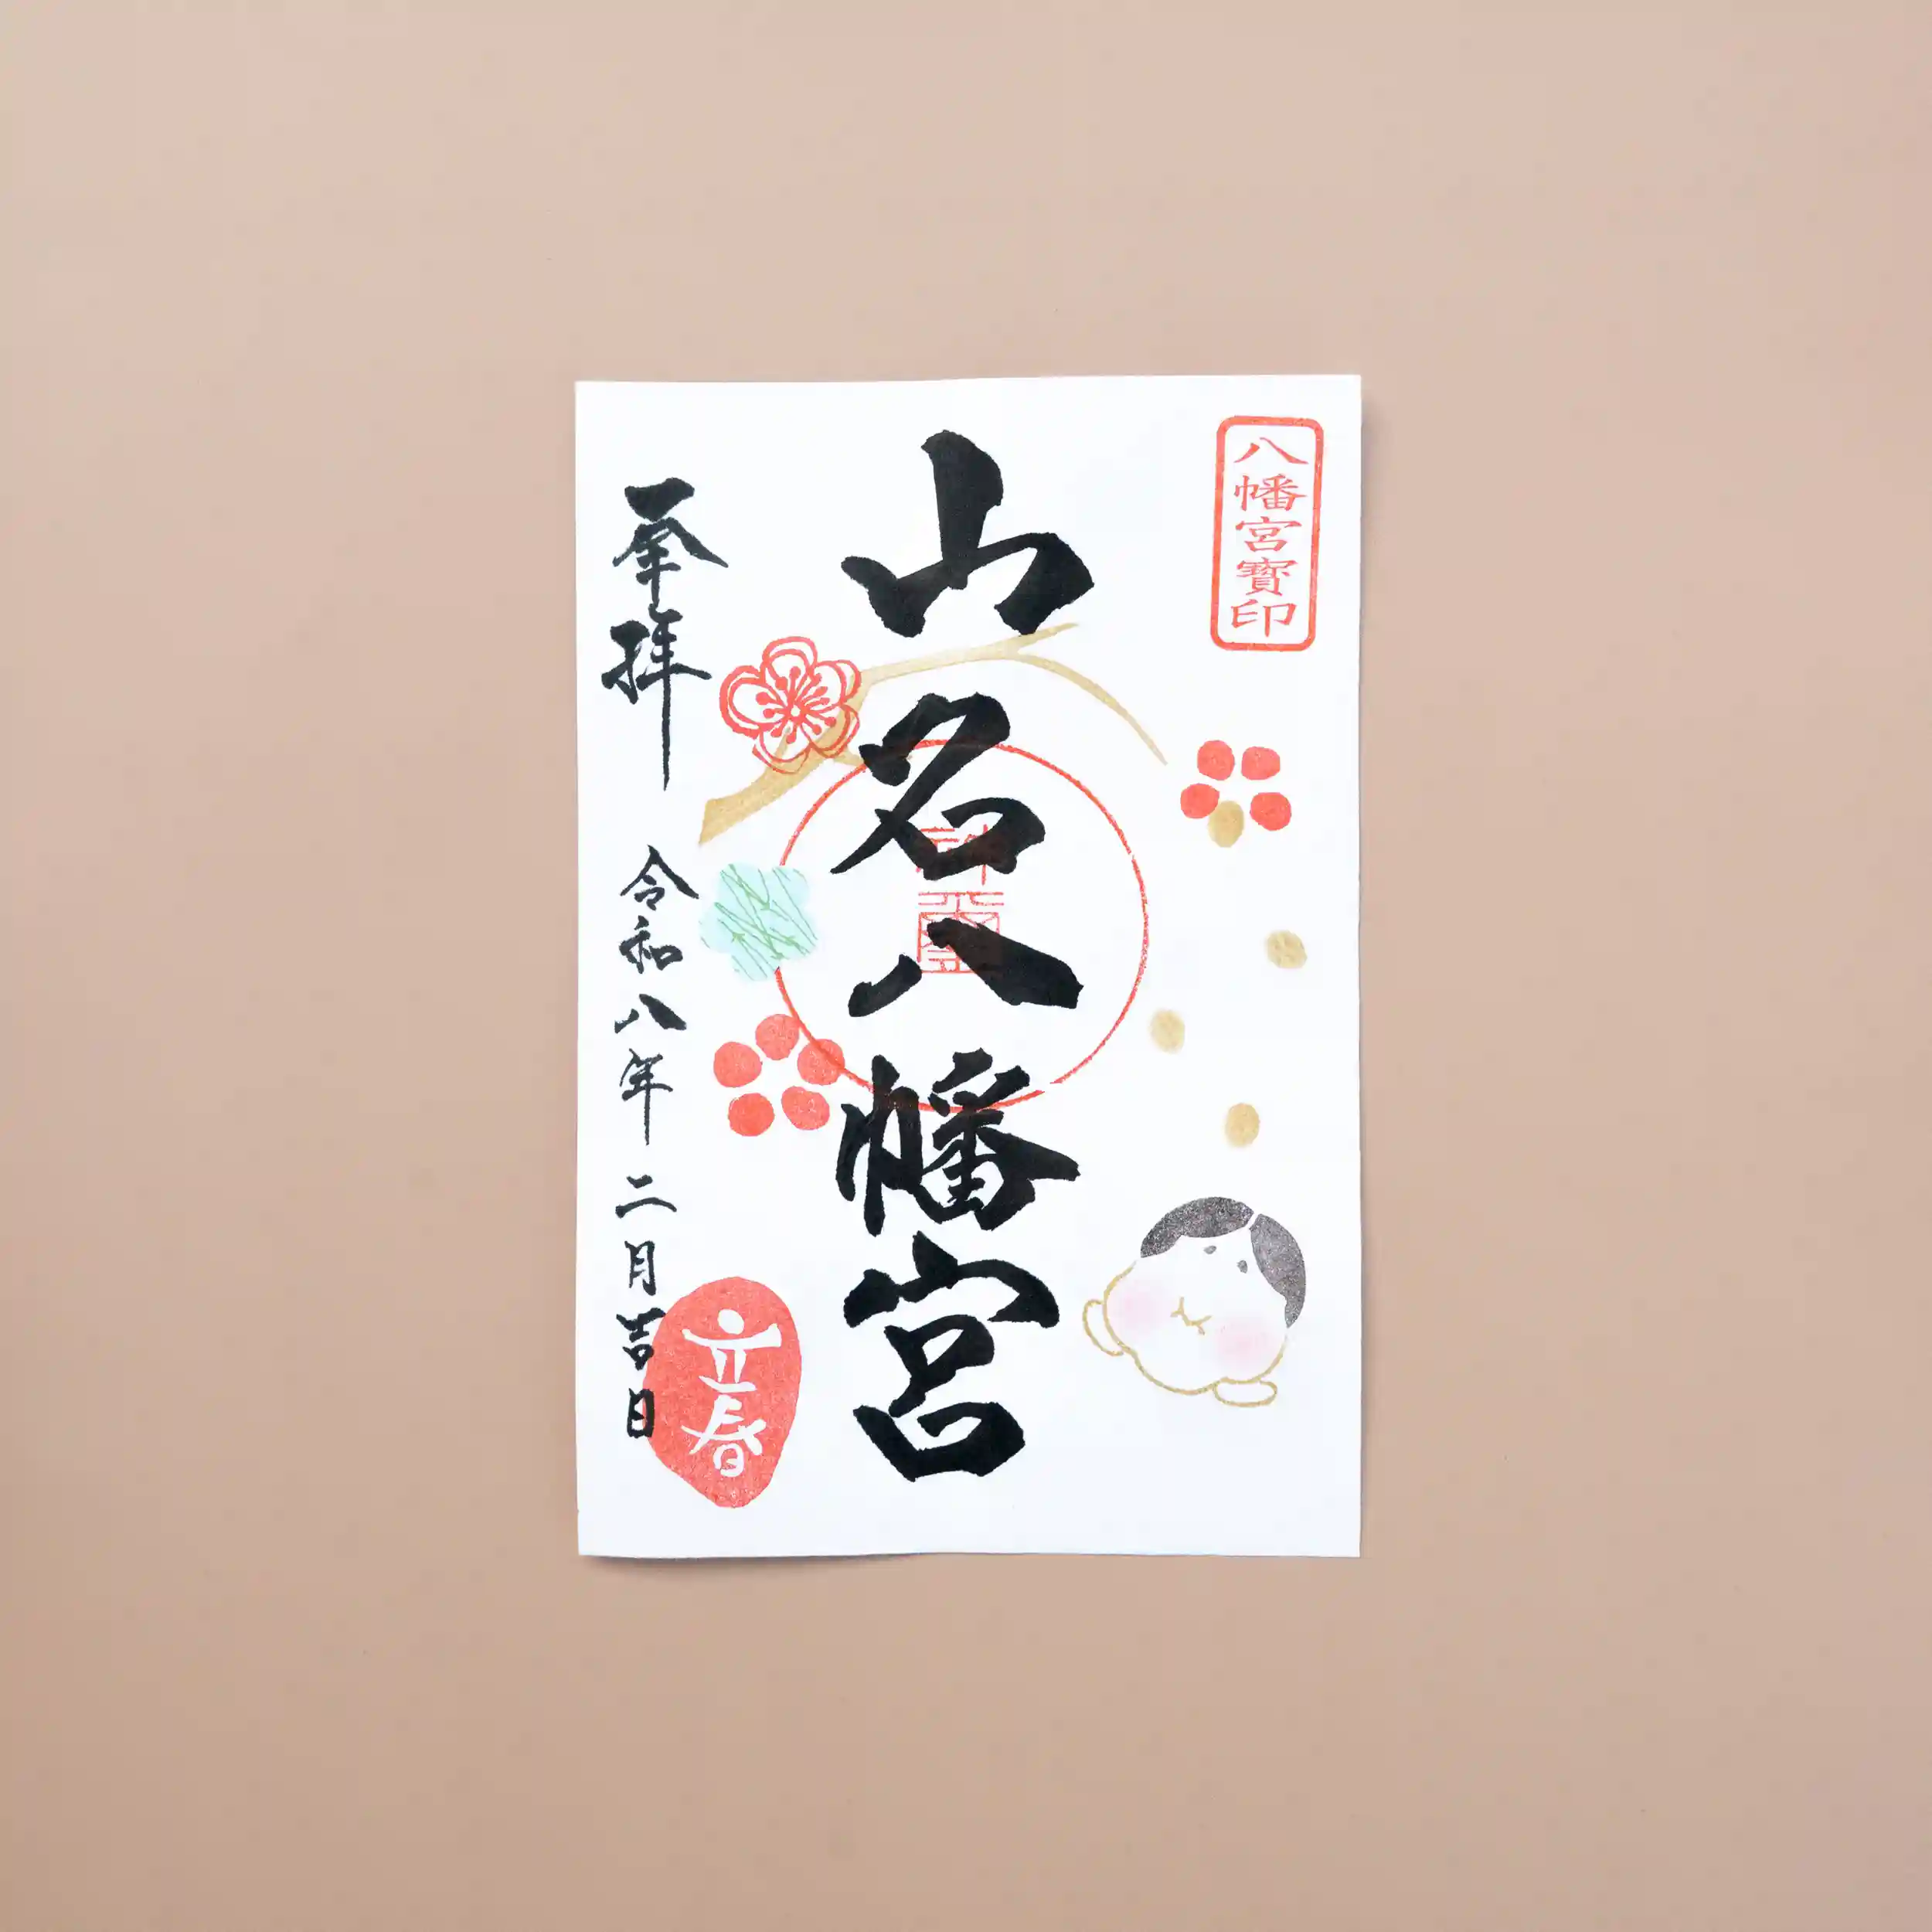 八幡宮寶印
山名八幡宮
奉拝
令和八年二月吉日
立春